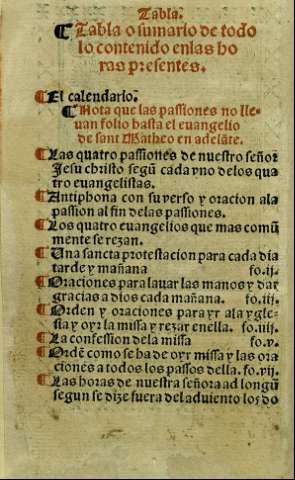 Tabla.
¶ Tabla o sumario de todo
lo contenido enlas ho
ras presentes.
¶ El calendario.
¶ Nota que las passiones no lle-
uan folio hasta el euangelio
de sant Matheo en adelãte.
¶ Las quatro passiones de nuestro señor
Jesu christo segũ cada vno delos qua
tro euangelistas.
¶ Antiphona con su verso y oracion ala
passion al fin delas passiones.
¶ Los quatro euangelios que mas comũ
mente se rezan.
¶ Una sancta protestacion para cada dia
tarde y mañana fo.ij.
¶ Oraciones para lauar las manos y dar
gracias a dios cada mañana. fo.iij.
¶ Orden y oraciones para yr ala ygle-
sia y oyr la missa y rezar enella. fo.iiij.
¶ La confession dela missa fo.v.
¶ Ordẽ como se ha de oyr missa y las ora
ciones a todos los passos della. fo.vij.
¶ Las horas de nuestra señora ad longũ
segun se dize fuera del aduiento los do